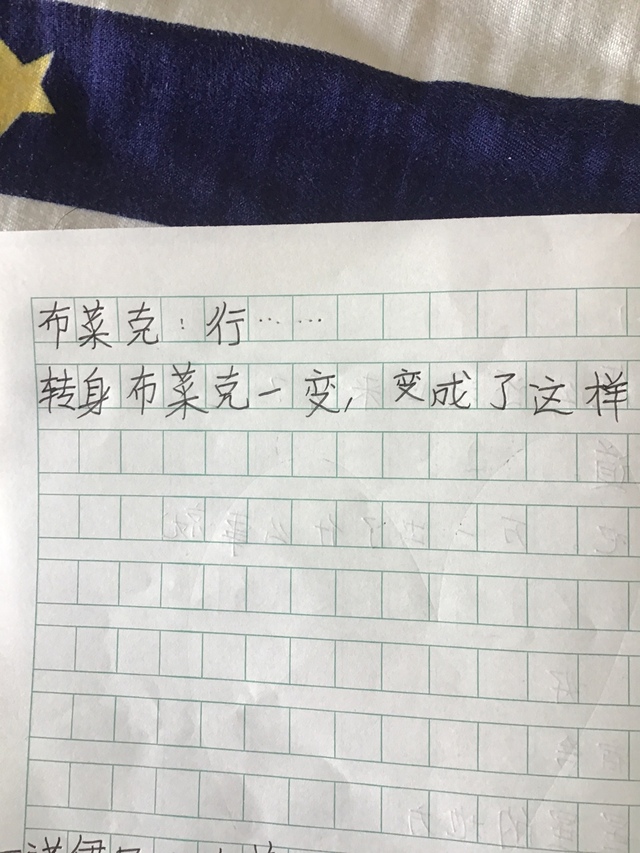 布菜克：行……
转身布菜克一变，变成了这样